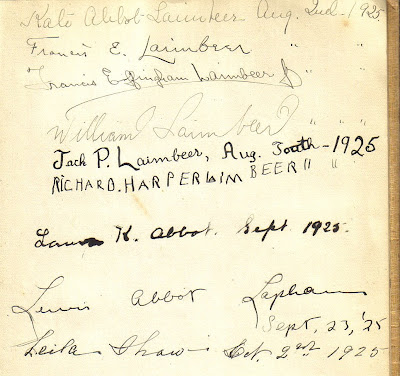 Kate Abbot Laimbeer Aug. 2nd - 1925
Francis E. Laimbeer " "
Francis Effingham Laimbeer Jr " " "
William Laimbeer " " "
Jack P. Laimbeer, Aug. - 1925
RICHARD. HARPER LAIMBEER " "
K. Abbot. Sept 1925.
Lewis Abbot Lapham
Sept. 23, '25
Leila Shaw Oct. 2nd 1925